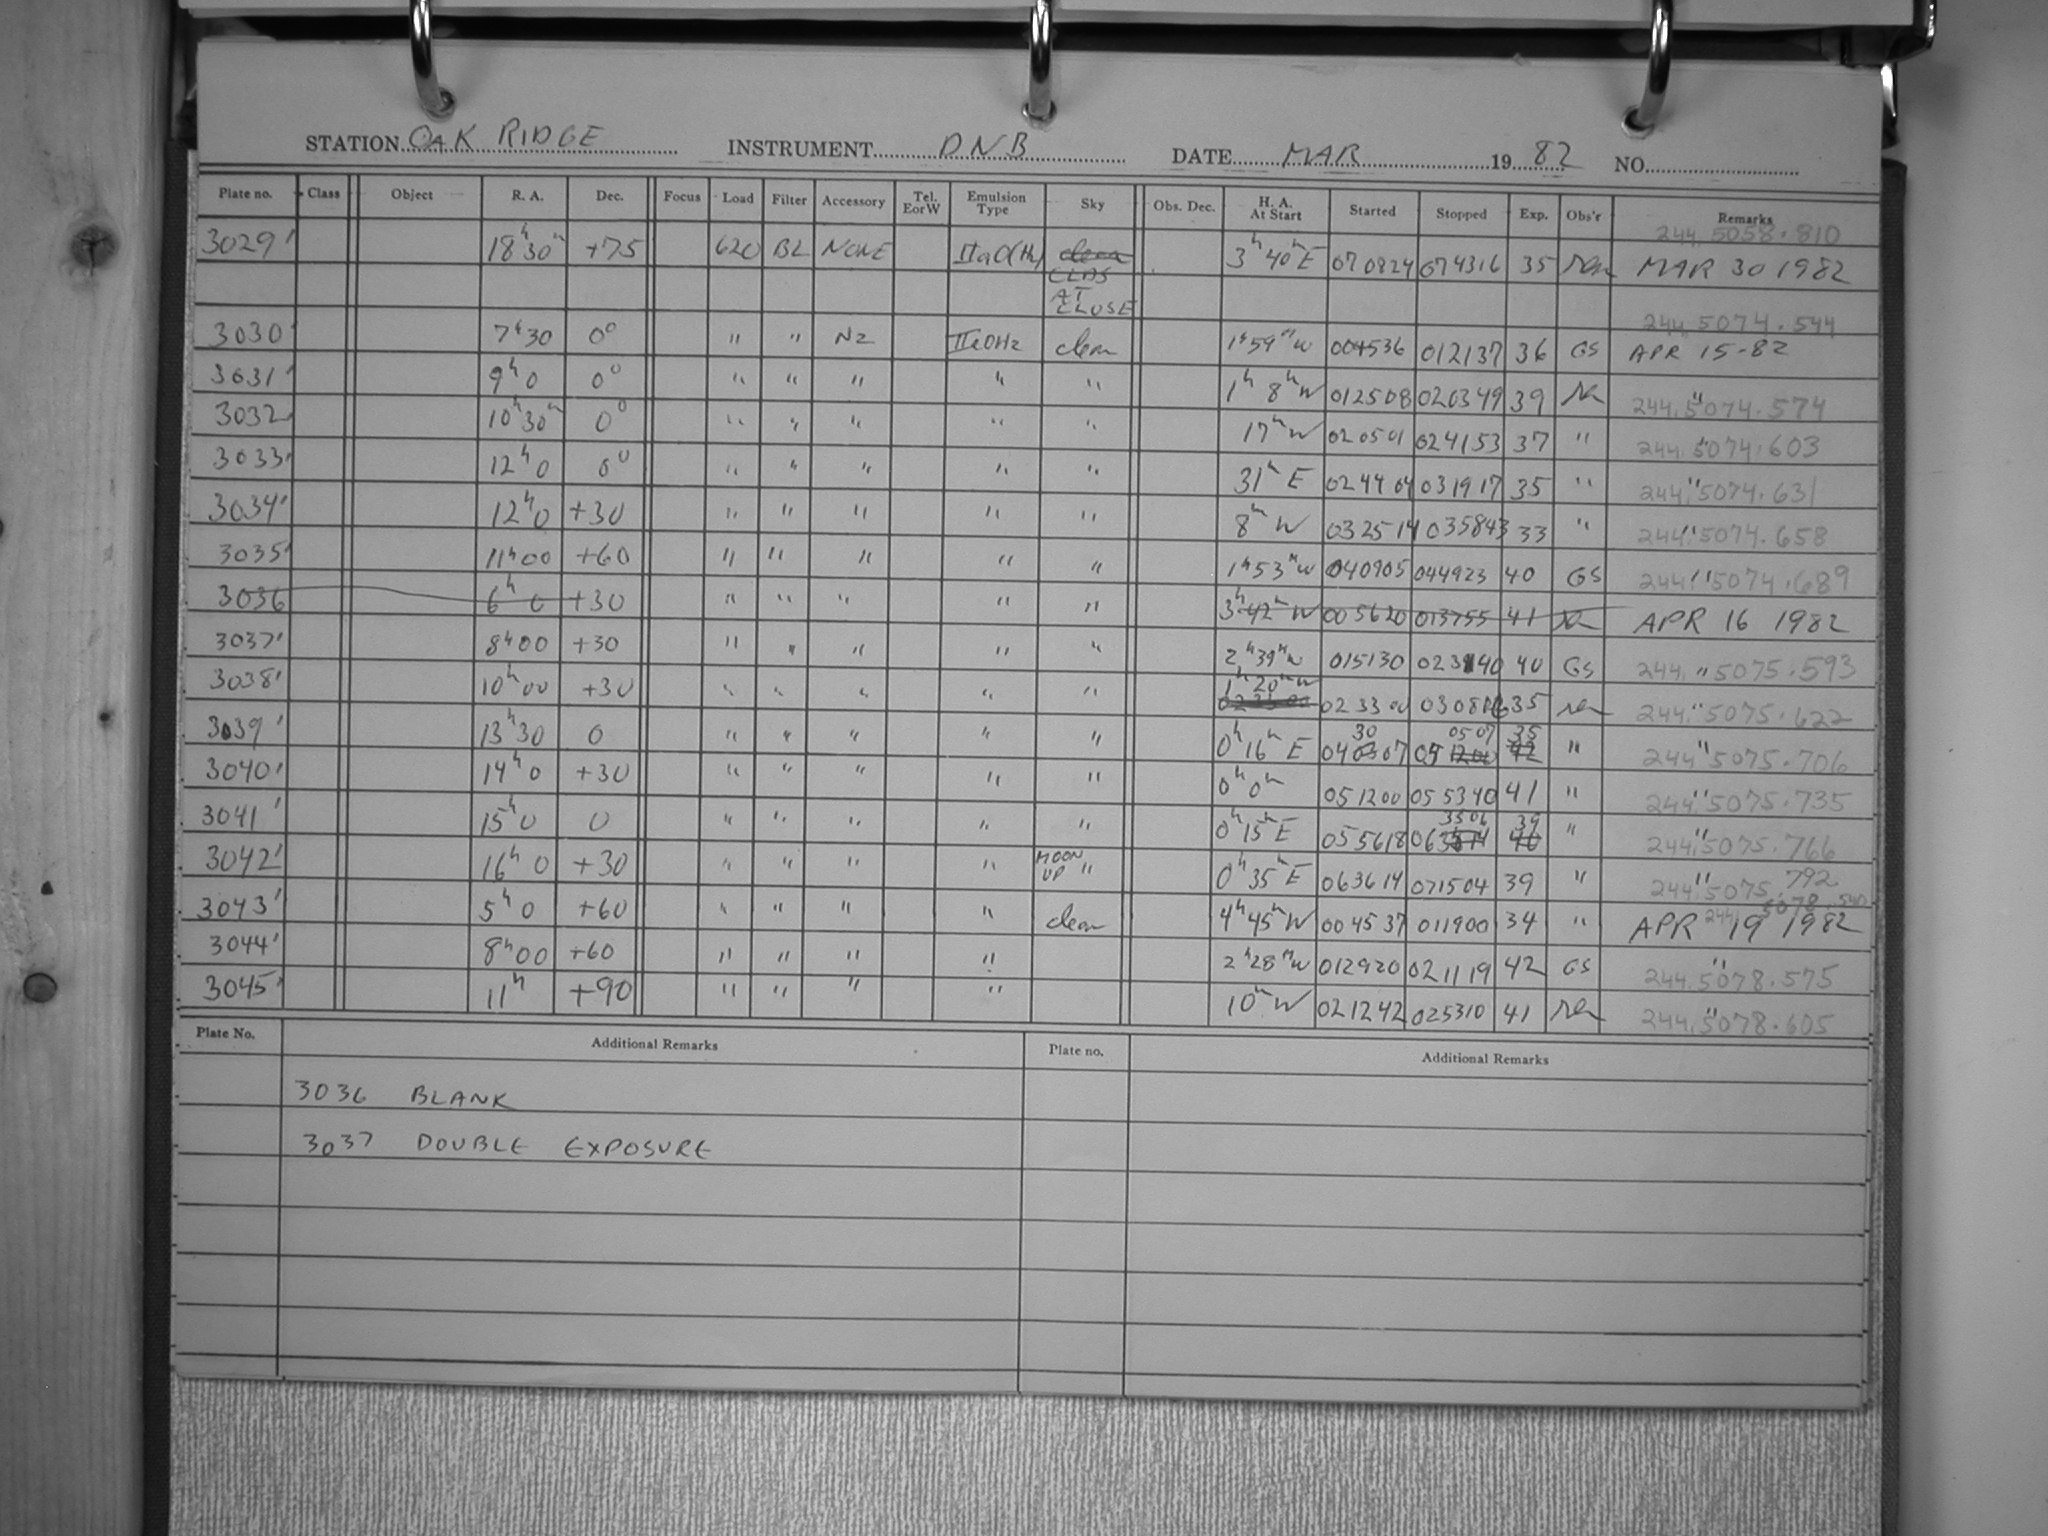 STATION OAK RIDGE INSTRUMENT DNB DATE MAR 19 82 NO.
Plate no. Class Object R. A. Dec. Focus Load Filter Accessory Tel. EorW Emulsion Type Sky Obs. Dec. H. A. At Start Started Stopped Exp. Obs'r Remarks
244 5058.810
3029' 18h30m +75 620 BL NONE IIaO(H2) clear 3h40m E 070824 074316 35 MAR 30 1982
CLDS
AT
CLOSE
244 5074.544
3030' 7h30 0° " " N2 IIaOH2 clear 1h59m W 004536 012137 36 GS APR 15-82
3031' 9h0 0° " " " " " 1h 8m W 012508 020349 39 244 " 5074.574
3032' 10h30m 0° " " " " " 17m W 020501 024153 37 " 244 " 5074.603
3033' 12h0 0° " " " " " 31m E 024404 031917 35 " 244 " 5074.631
3034' 12h0 +30 " " " " " 8m W 032514 035843 33 " 244 " 5074.658
3035' 11h00 +60 " " " " " 1h53m W 040905 044923 40 GS 244 " 5074.689
3036 6h 0 +30 " " " " " 3h42m W 005620 013755 41 APR 16 1982
3037' 8h00 +30 " " " " " 2h39m W 015130 023140 40 GS 244 " 5075.593
3038' 10h00 +30 " " " " " 1h20m W 023300 030816 35 244 " 5075.622
3039' 13h30 0 " " " " " 0h16m E 040307 30 051200 0507 42 35 " 244 " 5075.706
3040' 14h0 +30 " " " " " 0h0m 051200 055340 41 " 244 " 5075.735
3041' 15h0 0 " " " " " 0h15m E 055618 3506 40 39 " 244 " 5075.766
3042' 16h 0 +30 " " " " MOON UP " 0h35m E 063614 071504 39 " 244 " 5075.792
244 5078.540
3043' 5h0 +60 " " " " clear 4h45m W 004537 011900 34 " APR 19 1982
3044' 8h00 +60 " " " " 2h28m W 012920 021119 42 GS 244 " 5078.575
3045' 11h +90 " " " " 10m W 021242 025310 41 244 " 5078.605
Plate No. Additional Remarks Plate no. Additional Remarks
3036 BLANK
3037 DOUBLE EXPOSURE